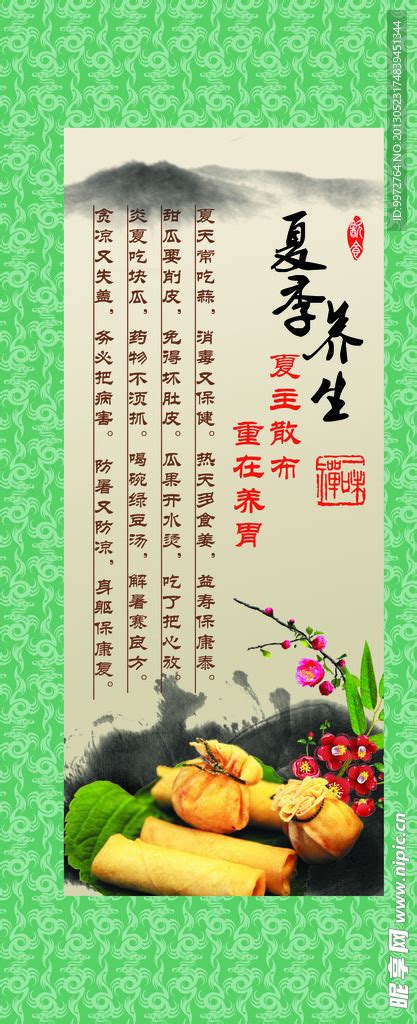 夏季养生
夏主散布
重在养胃
夏天常吃蒜，消毒又保健。热天多食姜，益寿保康泰。
甜瓜要削皮，免得坏肚皮。瓜果开水烫，吃了把心放。
炎夏吃块瓜，药物不须抓。喝碗绿豆汤，解暑赛良方。
贪凉又失盖，务必把病害。防暑又防凉，身躯保康复。
一味
禅
昵享网 www.nipic.cn
ID:9972764 NO:20130523174839451344